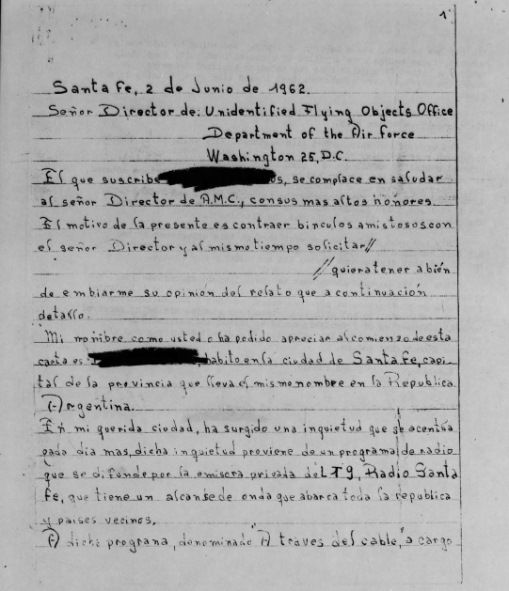 1
Santa Fe, 2 de Junio de 1962.
Señor Director de: Unidentified Flying Objects Office
Department of the Air Force
Washington 25, D.C.
El que suscribe os, se complace en saludar
al señor Director de A.M.C., consus mas altos honores.
El motivo de la presente es contraer binculos amistosos con
el señor Director y al mismo tiempo solicitar//
//quiera tener a bién
de embiarme su opinión del relato que a continuación
detallo.
Mi nombre como usted ha podido apreciar al comienzo de esta
carta es habito en la ciudad de Santa Fe, capi-
tal de la provincia que lleva el mismo nombre en la Republica
Argentina.
En mi querida ciudad, ha surgido una inquietud que se acentúa
cada dia mas, dicha inquietud proviene de un programa de radio
que se difunde por la emisora privada del LT9, Radio Santa
Fe, que tiene un alcanse de onda que abarca toda la republica
y paises vecinos.
A dicho programa, denominado "A traves del cable," a cargo